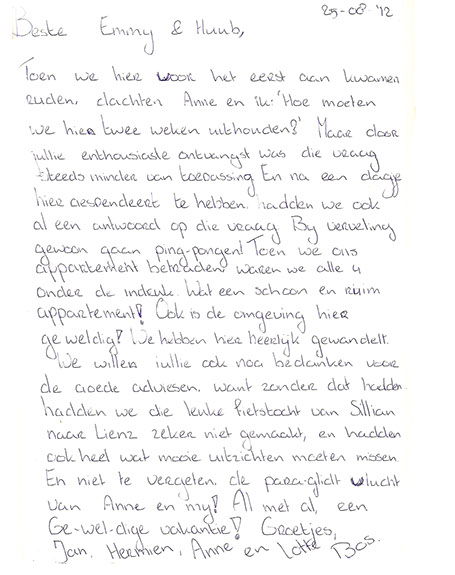 25-08-'12
Beste Emmy & Huub,
Toen we hier voor het eerst aan kwamen
rijden, dachten Anne en ik: 'Hoe moeten
we hier twee weken uithouden?' Maar door
jullie enthousiaste ontvangst was die vraag
steeds minder van toepassing En na een dagje
hier gespendeert te hebben, hadden we ook
al een antwoord op die vraag By verveling
gewoon gaan ping-pongen! Toen we ons
appartement betraden waren we alle 4
onder de indruk. Wat een schoon en ruim
appartement! Ook is de omgeving hier
geweldig! We hebben hier heerlijk gewandelt.
We willen jullie ook nog bedanken voor
de goede adviesen, want zonder dat hadden
hadden we die leuke fietstocht van Sillian
naar Lienz zeker niet gemaakt, en hadden
ook heel wat mooie uitzichten moeten missen
En niet te vergeten, de para-glidt vlucht
van Anne en my! Al met al, een
Ge-wel-dige vakantie! Groetjes,
Jan, Hermien, Anne en Lotte Bos.